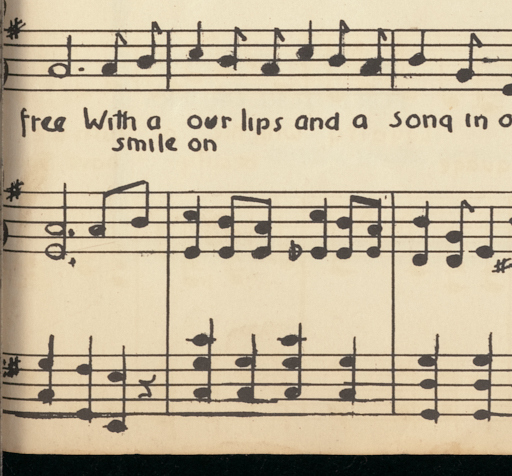 free With a our lips and a song in o
smile on